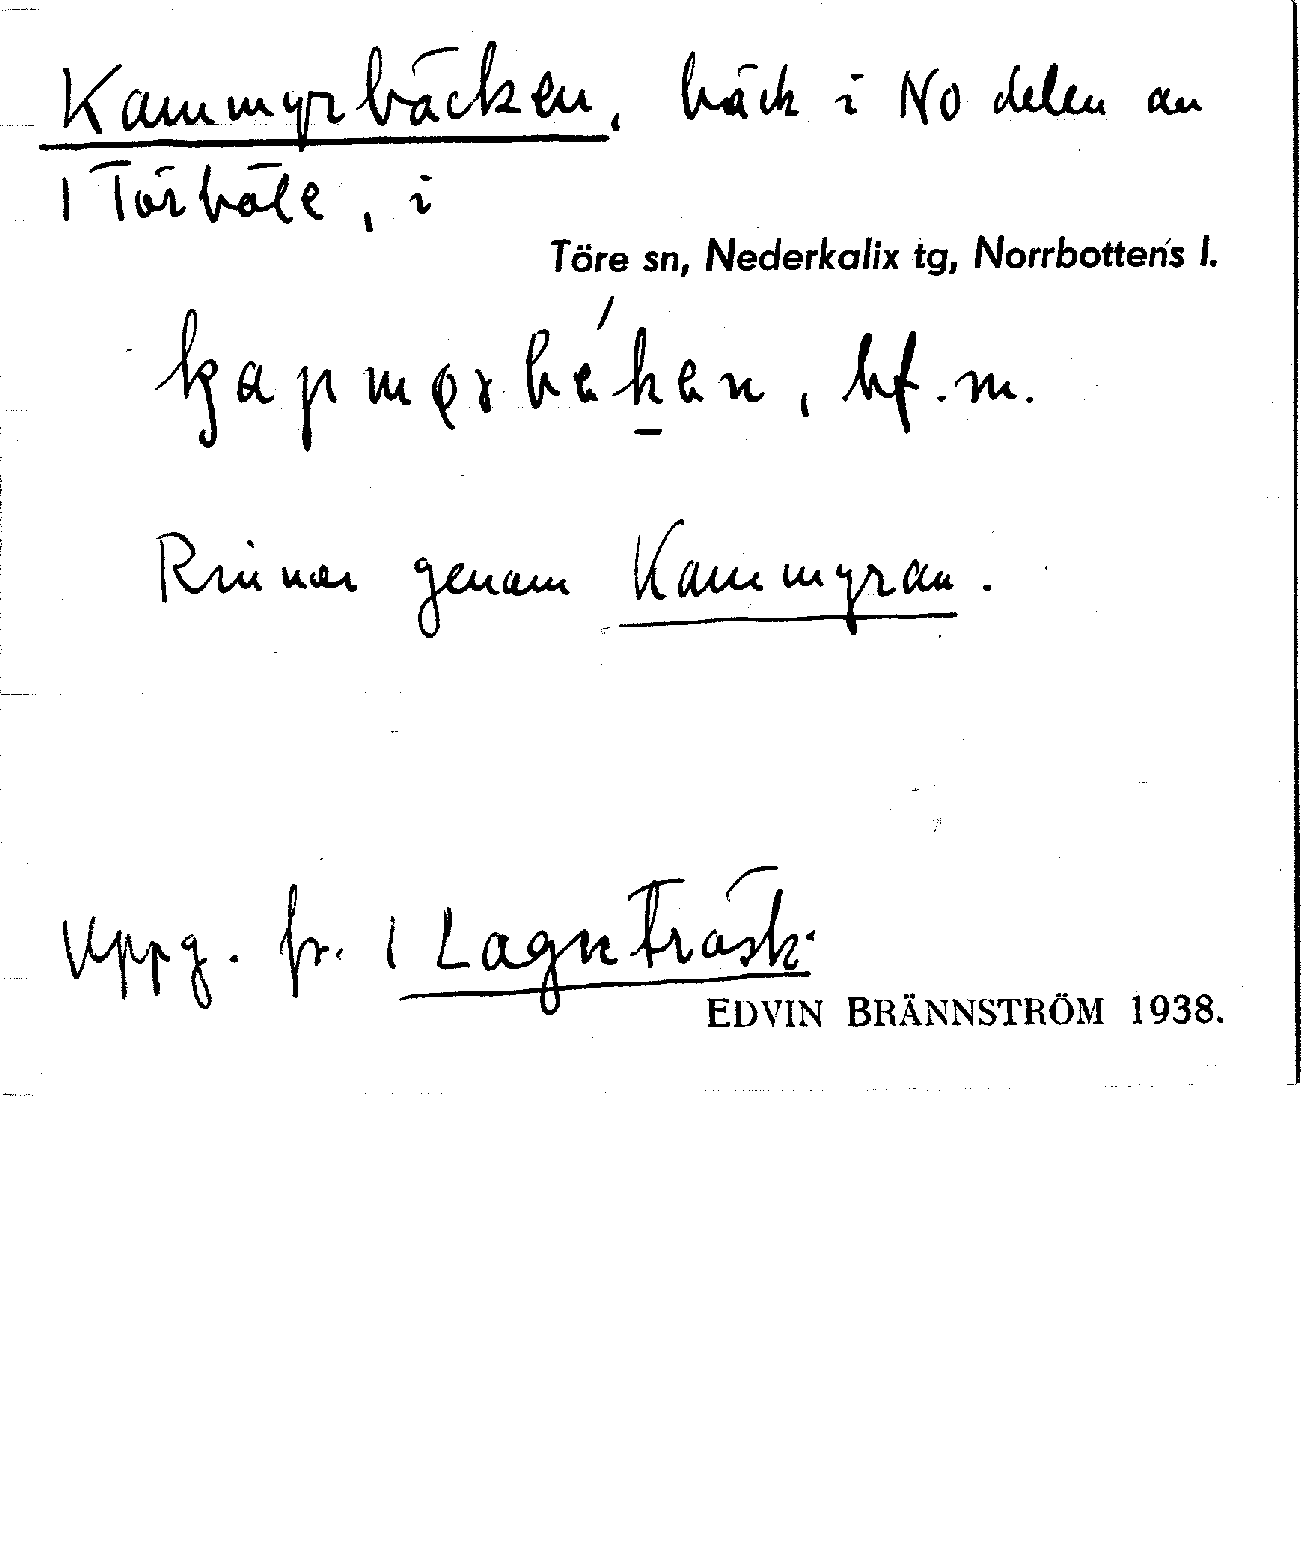 Kammyrbäcken, bäck i NO delen av
1 Törböle, i
Töre sn, Nederkalix tg, Norrbottens l.
bf. m.
Rinner genom Kammyran.
Uppg. fr. 1 Lagnträsk.
EDVIN BRÄNNSTRÖM 1938.